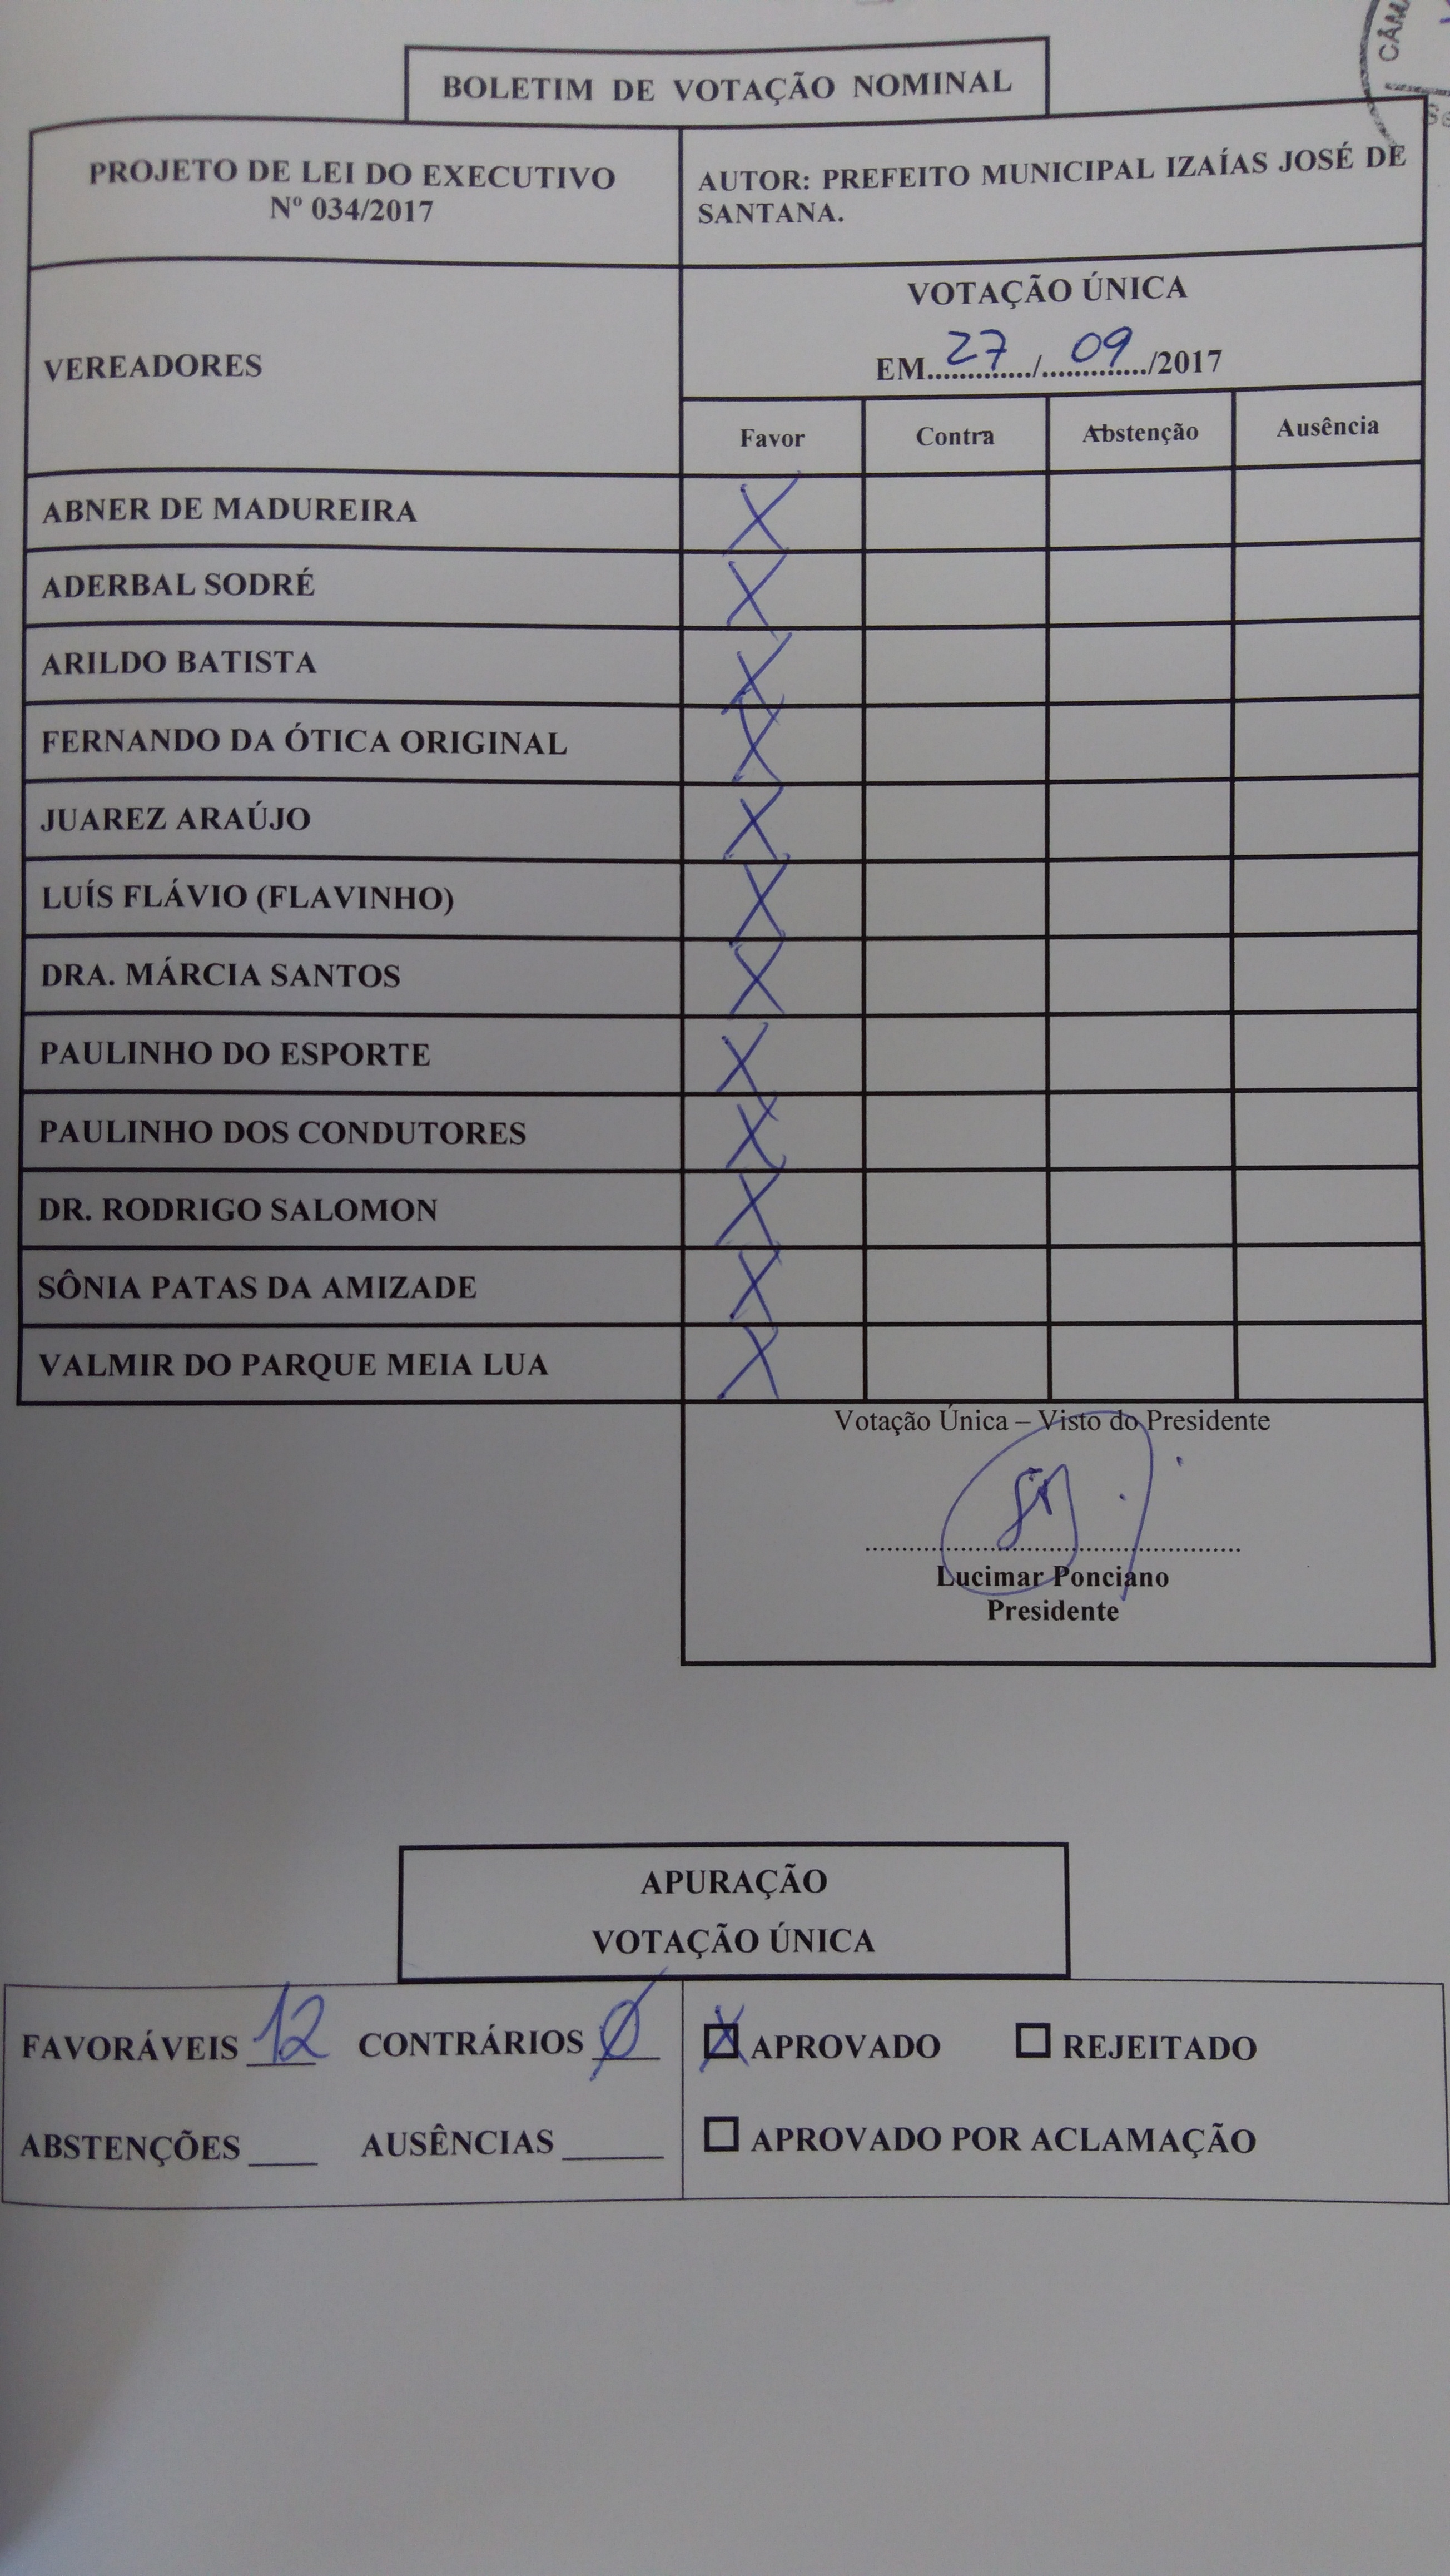 CÂM
BOLETIM DE VOTAÇÃO NOMINAL
PROJETO DE LEI DO EXECUTIVO
Nº 034/2017
AUTOR: PREFEITO MUNICIPAL IZAÍAS JOSÉ DE
SANTANA.
VEREADORES
VOTAÇÃO ÚNICA
EM....27..../....09..../2017
Favor Contra Abstenção Ausência
ABNER DE MADUREIRA X
ADERBAL SODRÉ X
ARILDO BATISTA X
FERNANDO DA ÓTICA ORIGINAL X
JUAREZ ARAÚJO X
LUÍS FLÁVIO (FLAVINHO) X
DRA. MÁRCIA SANTOS X
PAULINHO DO ESPORTE X
PAULINHO DOS CONDUTORES X
DR. RODRIGO SALOMON X
SÔNIA PATAS DA AMIZADE X
VALMIR DO PARQUE MEIA LUA X
Votação Única – Visto do Presidente
Lucimar Ponciano
Presidente
APURAÇÃO
VOTAÇÃO ÚNICA
FAVORÁVEIS 12 CONTRÁRIOS Ø
ABSTENÇÕES ____ AUSÊNCIAS ______
☒ APROVADO ☐ REJEITADO
☐ APROVADO POR ACLAMAÇÃO